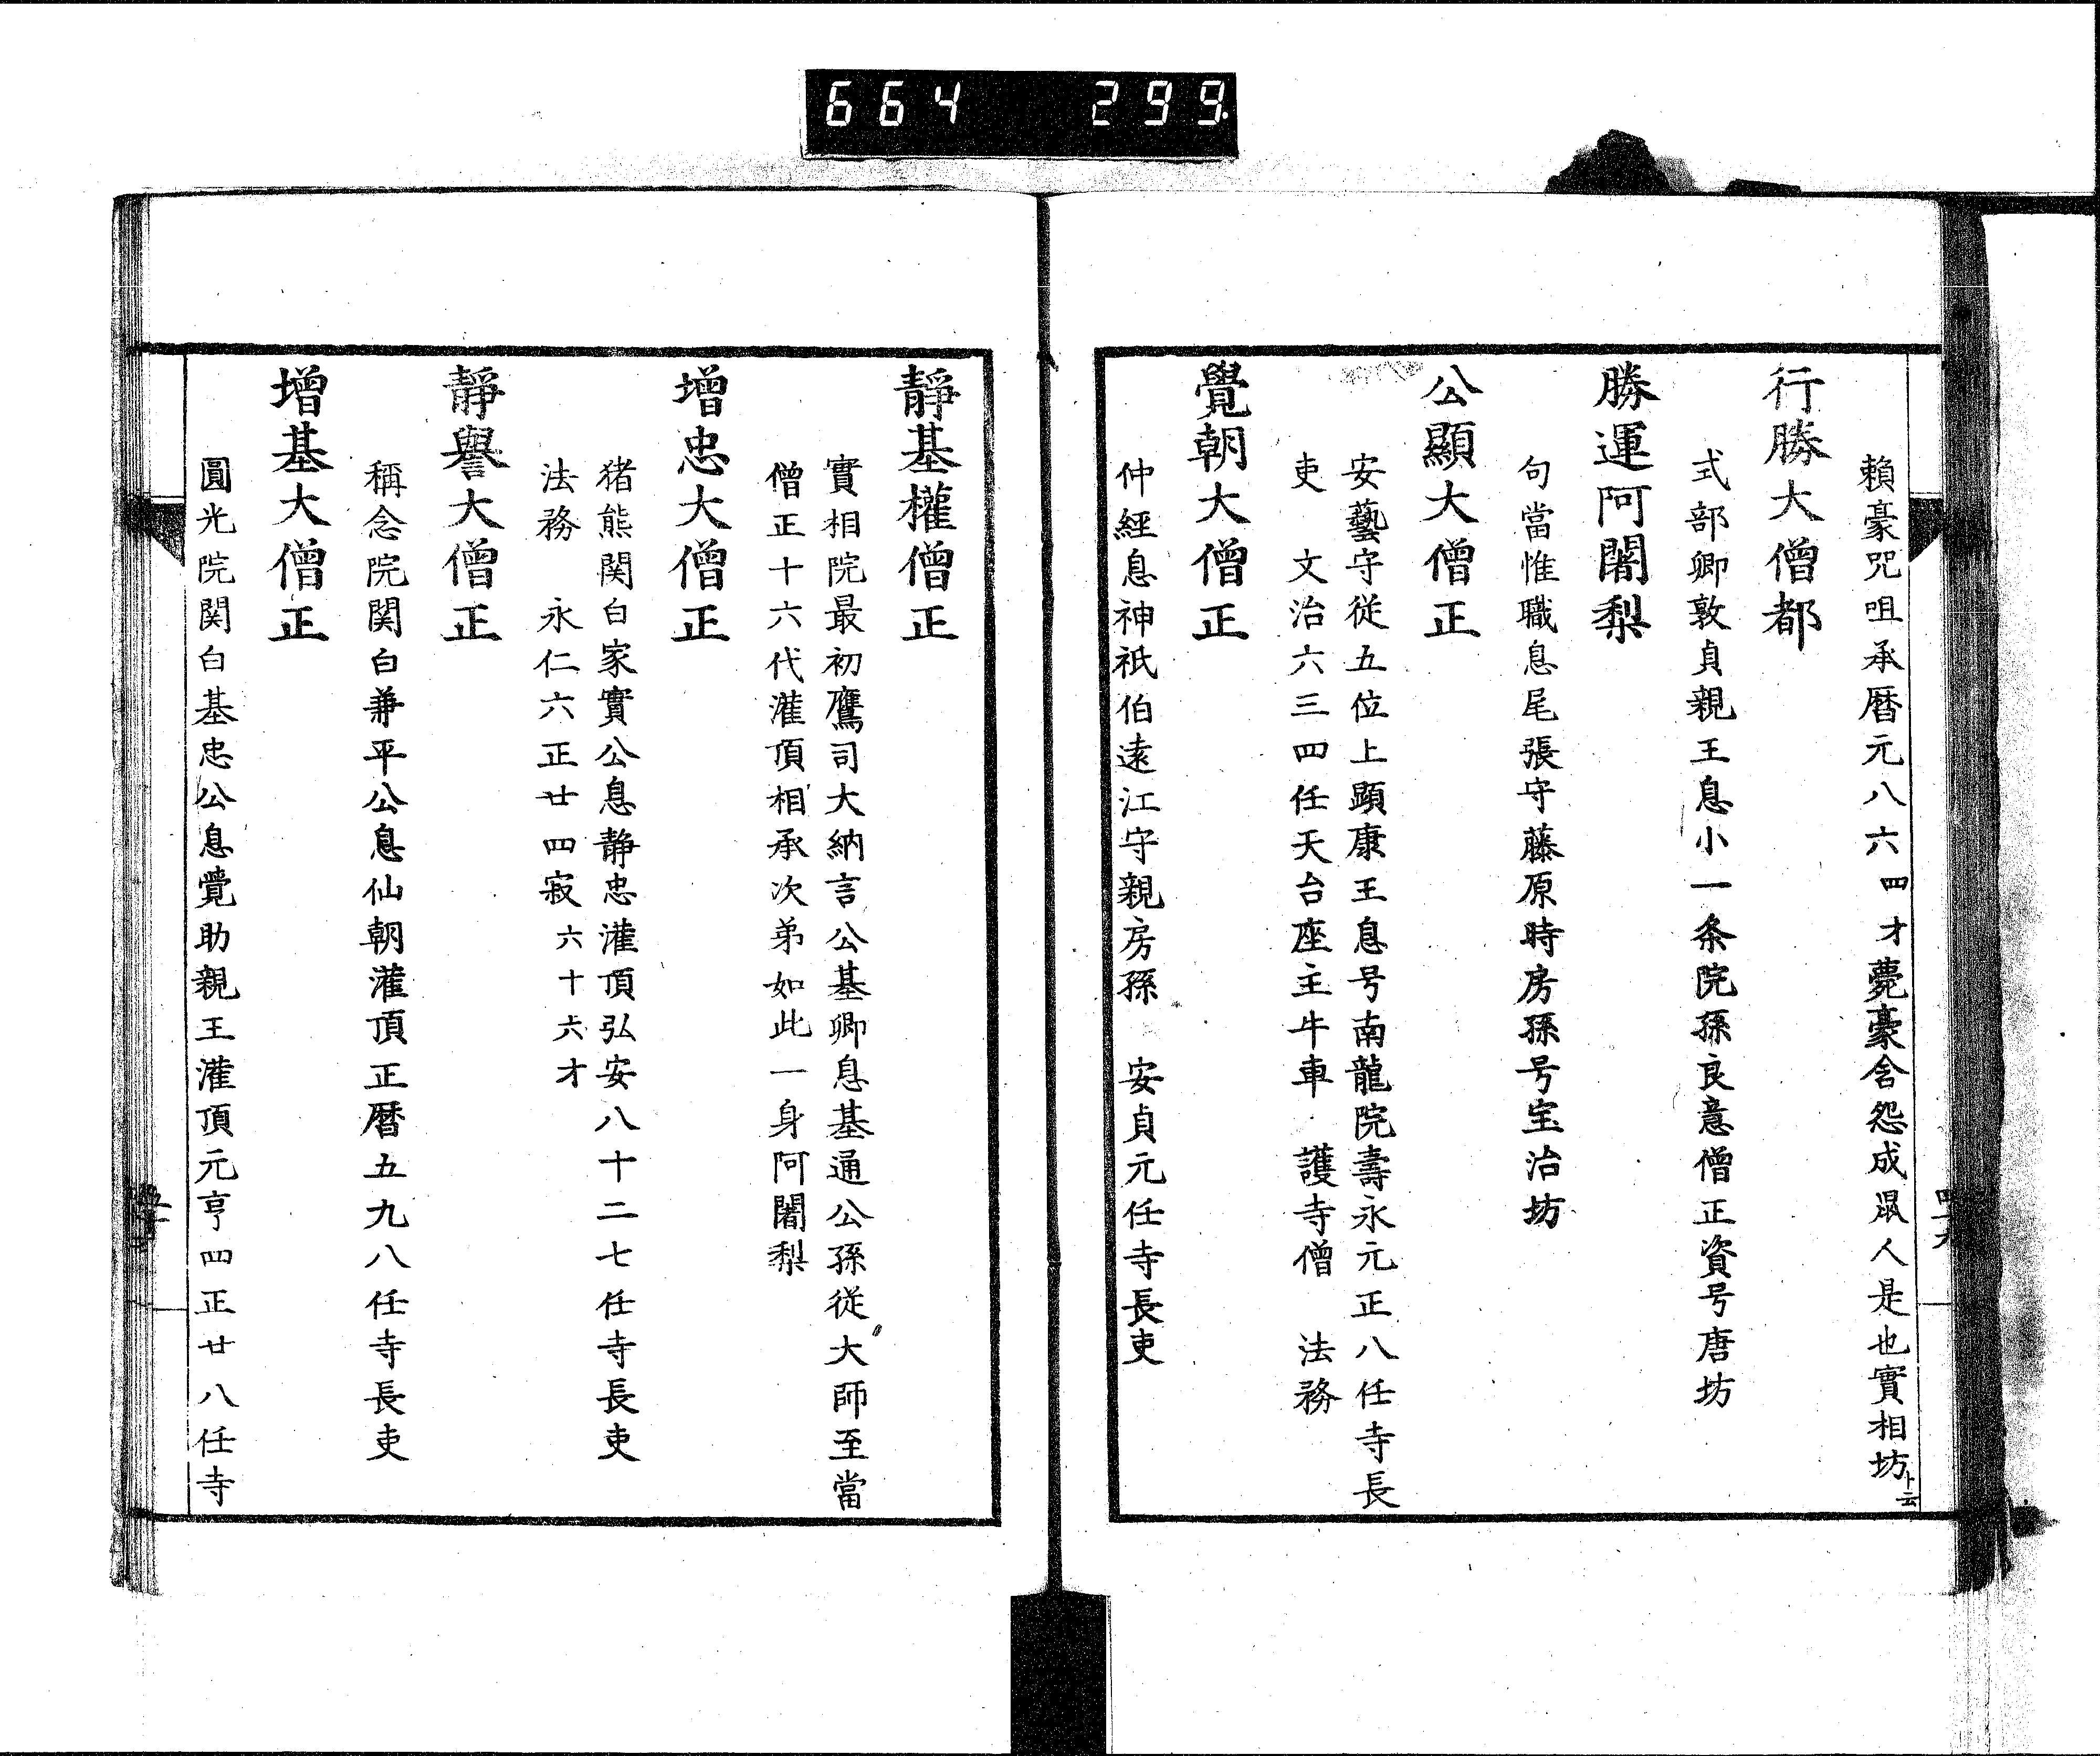 664 299
賴豪咒咀承曆元八六四才薨豪含怨成鼠人是也實相坊ト云
行勝大僧都
式部卿敦貞親王息小一条院孫良意僧正資号唐坊
勝運阿闍梨
句當惟職息尾張守藤原時房孫号宝治坊
公顯大僧正
安藝守從五位上顕康王息号南龍院壽永元正八任寺長
吏 文治六三四任天台座主牛車 護寺僧 法務
覺朝大僧正
仲經息神祇伯遠江守親房孫 安貞元任寺長吏
靜基權僧正
實相院最初鷹司大納言公基卿息基通公孫從大師至當
僧正十六代灌頂相承次弟如此一身阿闍梨
增忠大僧正
猪熊関白家實公息静忠灌頂弘安八十二七任寺長吏
法務 永仁六正廿四寂六十六才
靜譽大僧正
稱念院関白兼平公息仙朝灌頂正曆五九八任寺長吏
增基大僧正
圓光院関白基忠公息覺助親王灌頂元亨四正廿八任寺